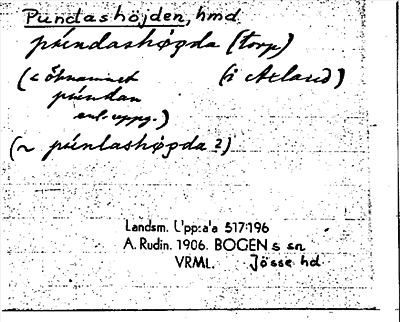 Pundashöjden, hmd.
púndashøgda (torp)
(< öknamnet (i Axland)
púndan
enl. uppg.)
(~ púntashøgda ?)
Landsm. Upp:a'a 517:196
A. Rudin. 1906. BOGEN s sn
VRML. Jösse hd.